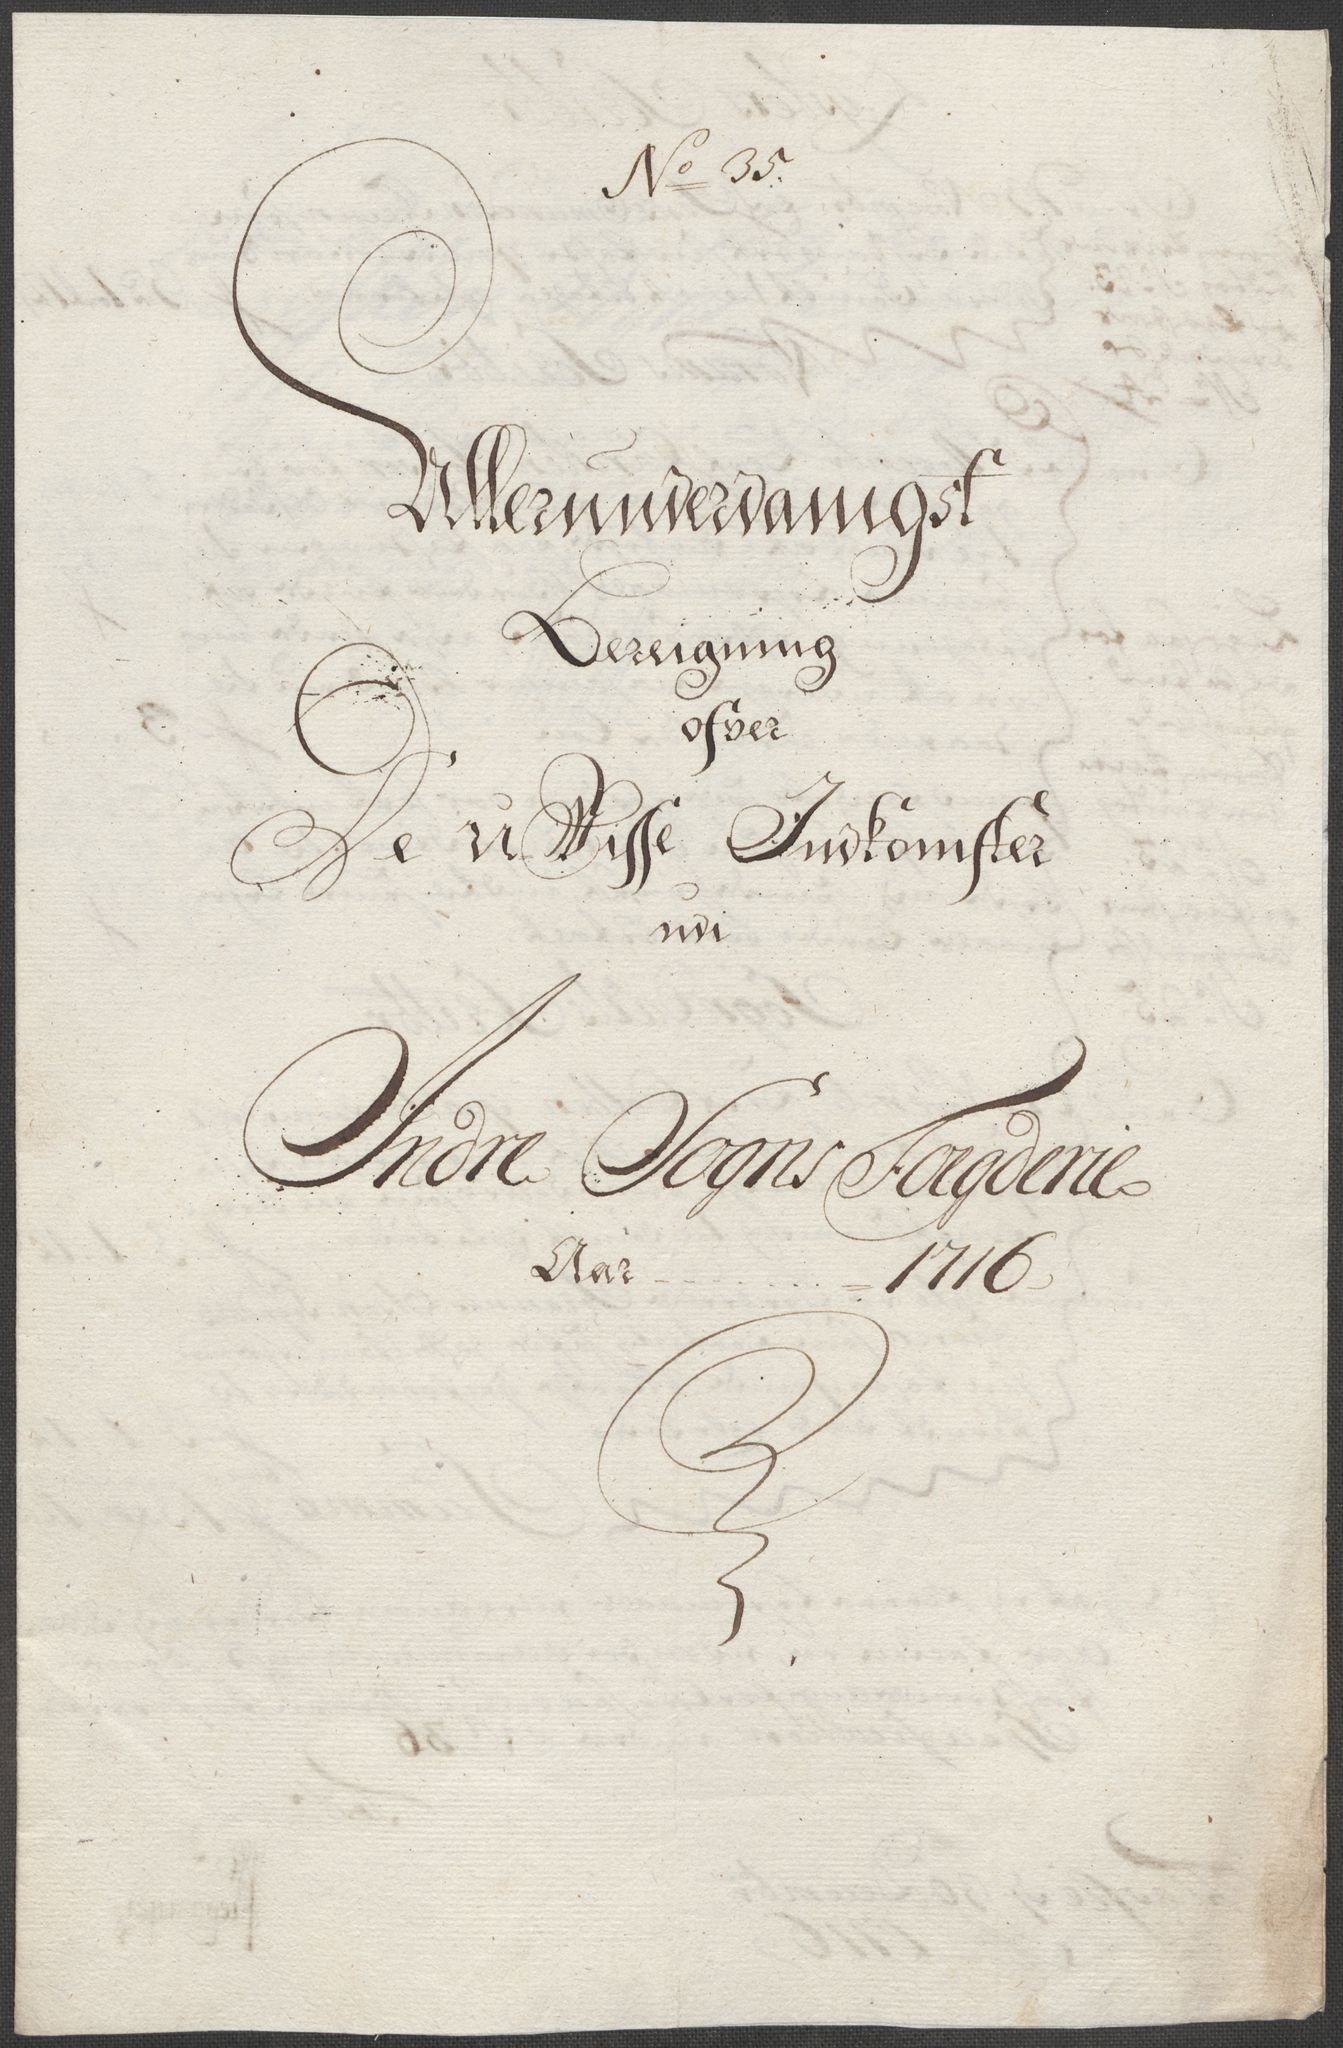 No 35.
Allerunderdanigst
Bereigning
ofver
De u Visse Indkomster
udi
Indre Sogns Fogderie
Aar - - - - - - - = 1716